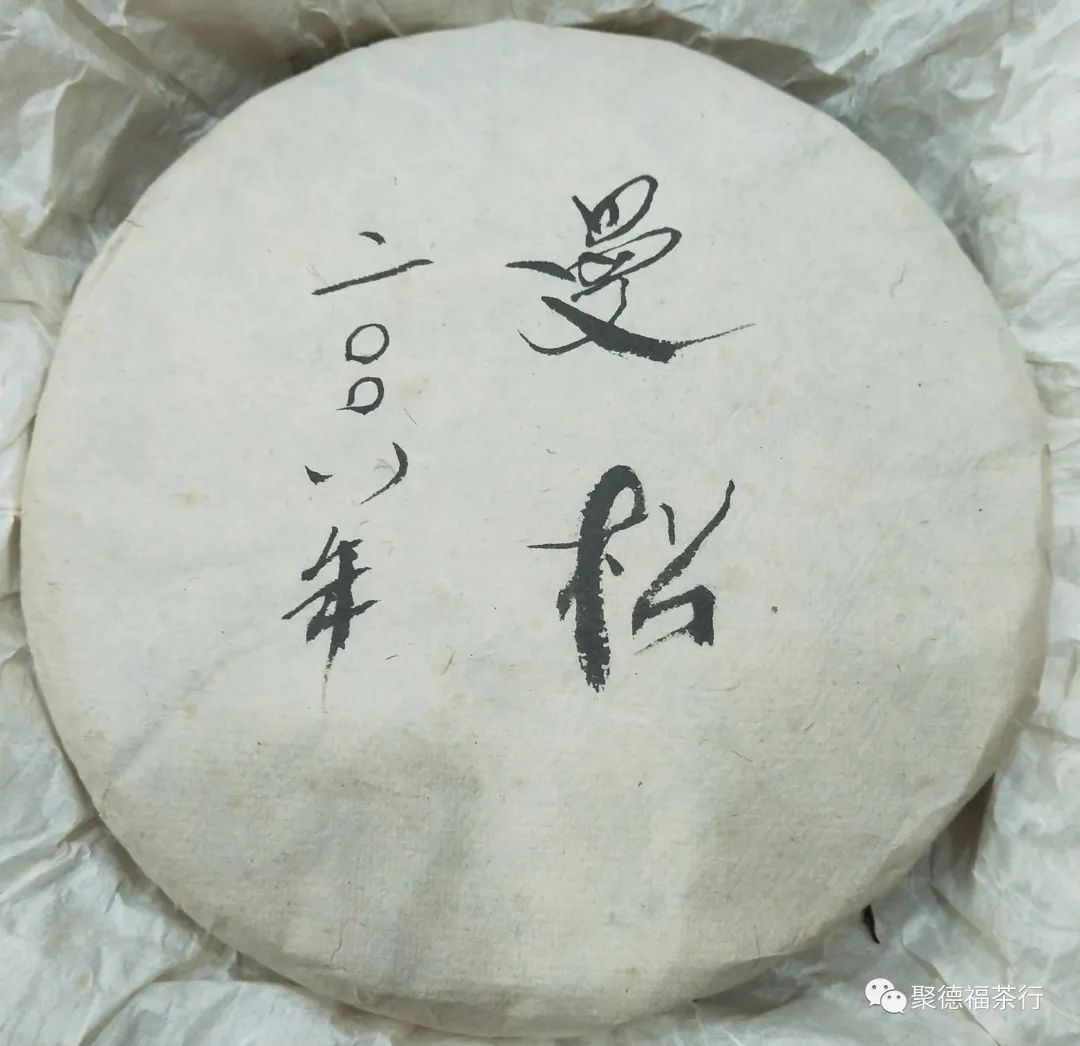 曼松
二〇〇八年
聚德福茶行